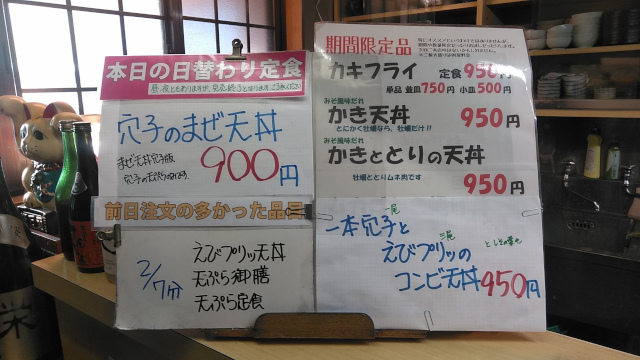 本日の日替わり定食
穴子のまぜ天丼
まぜ天丼穴子版
900円
前日注文の多かった品目
2/7分
えびプリッ天丼
天ぷら御膳
天ぷら定食
期間限定品
カキフライ 定食950円
単品 並皿750円 小皿500円
みそ風味だれ
かき天丼 950円
とにかく牡蠣なら、牡蠣だけ!!
みそ風味だれ
かきととりの天丼
牡蠣ととりムネ肉です
950円
一尾
一本穴子と
三尾
えびプリッの
コンビ天丼950円